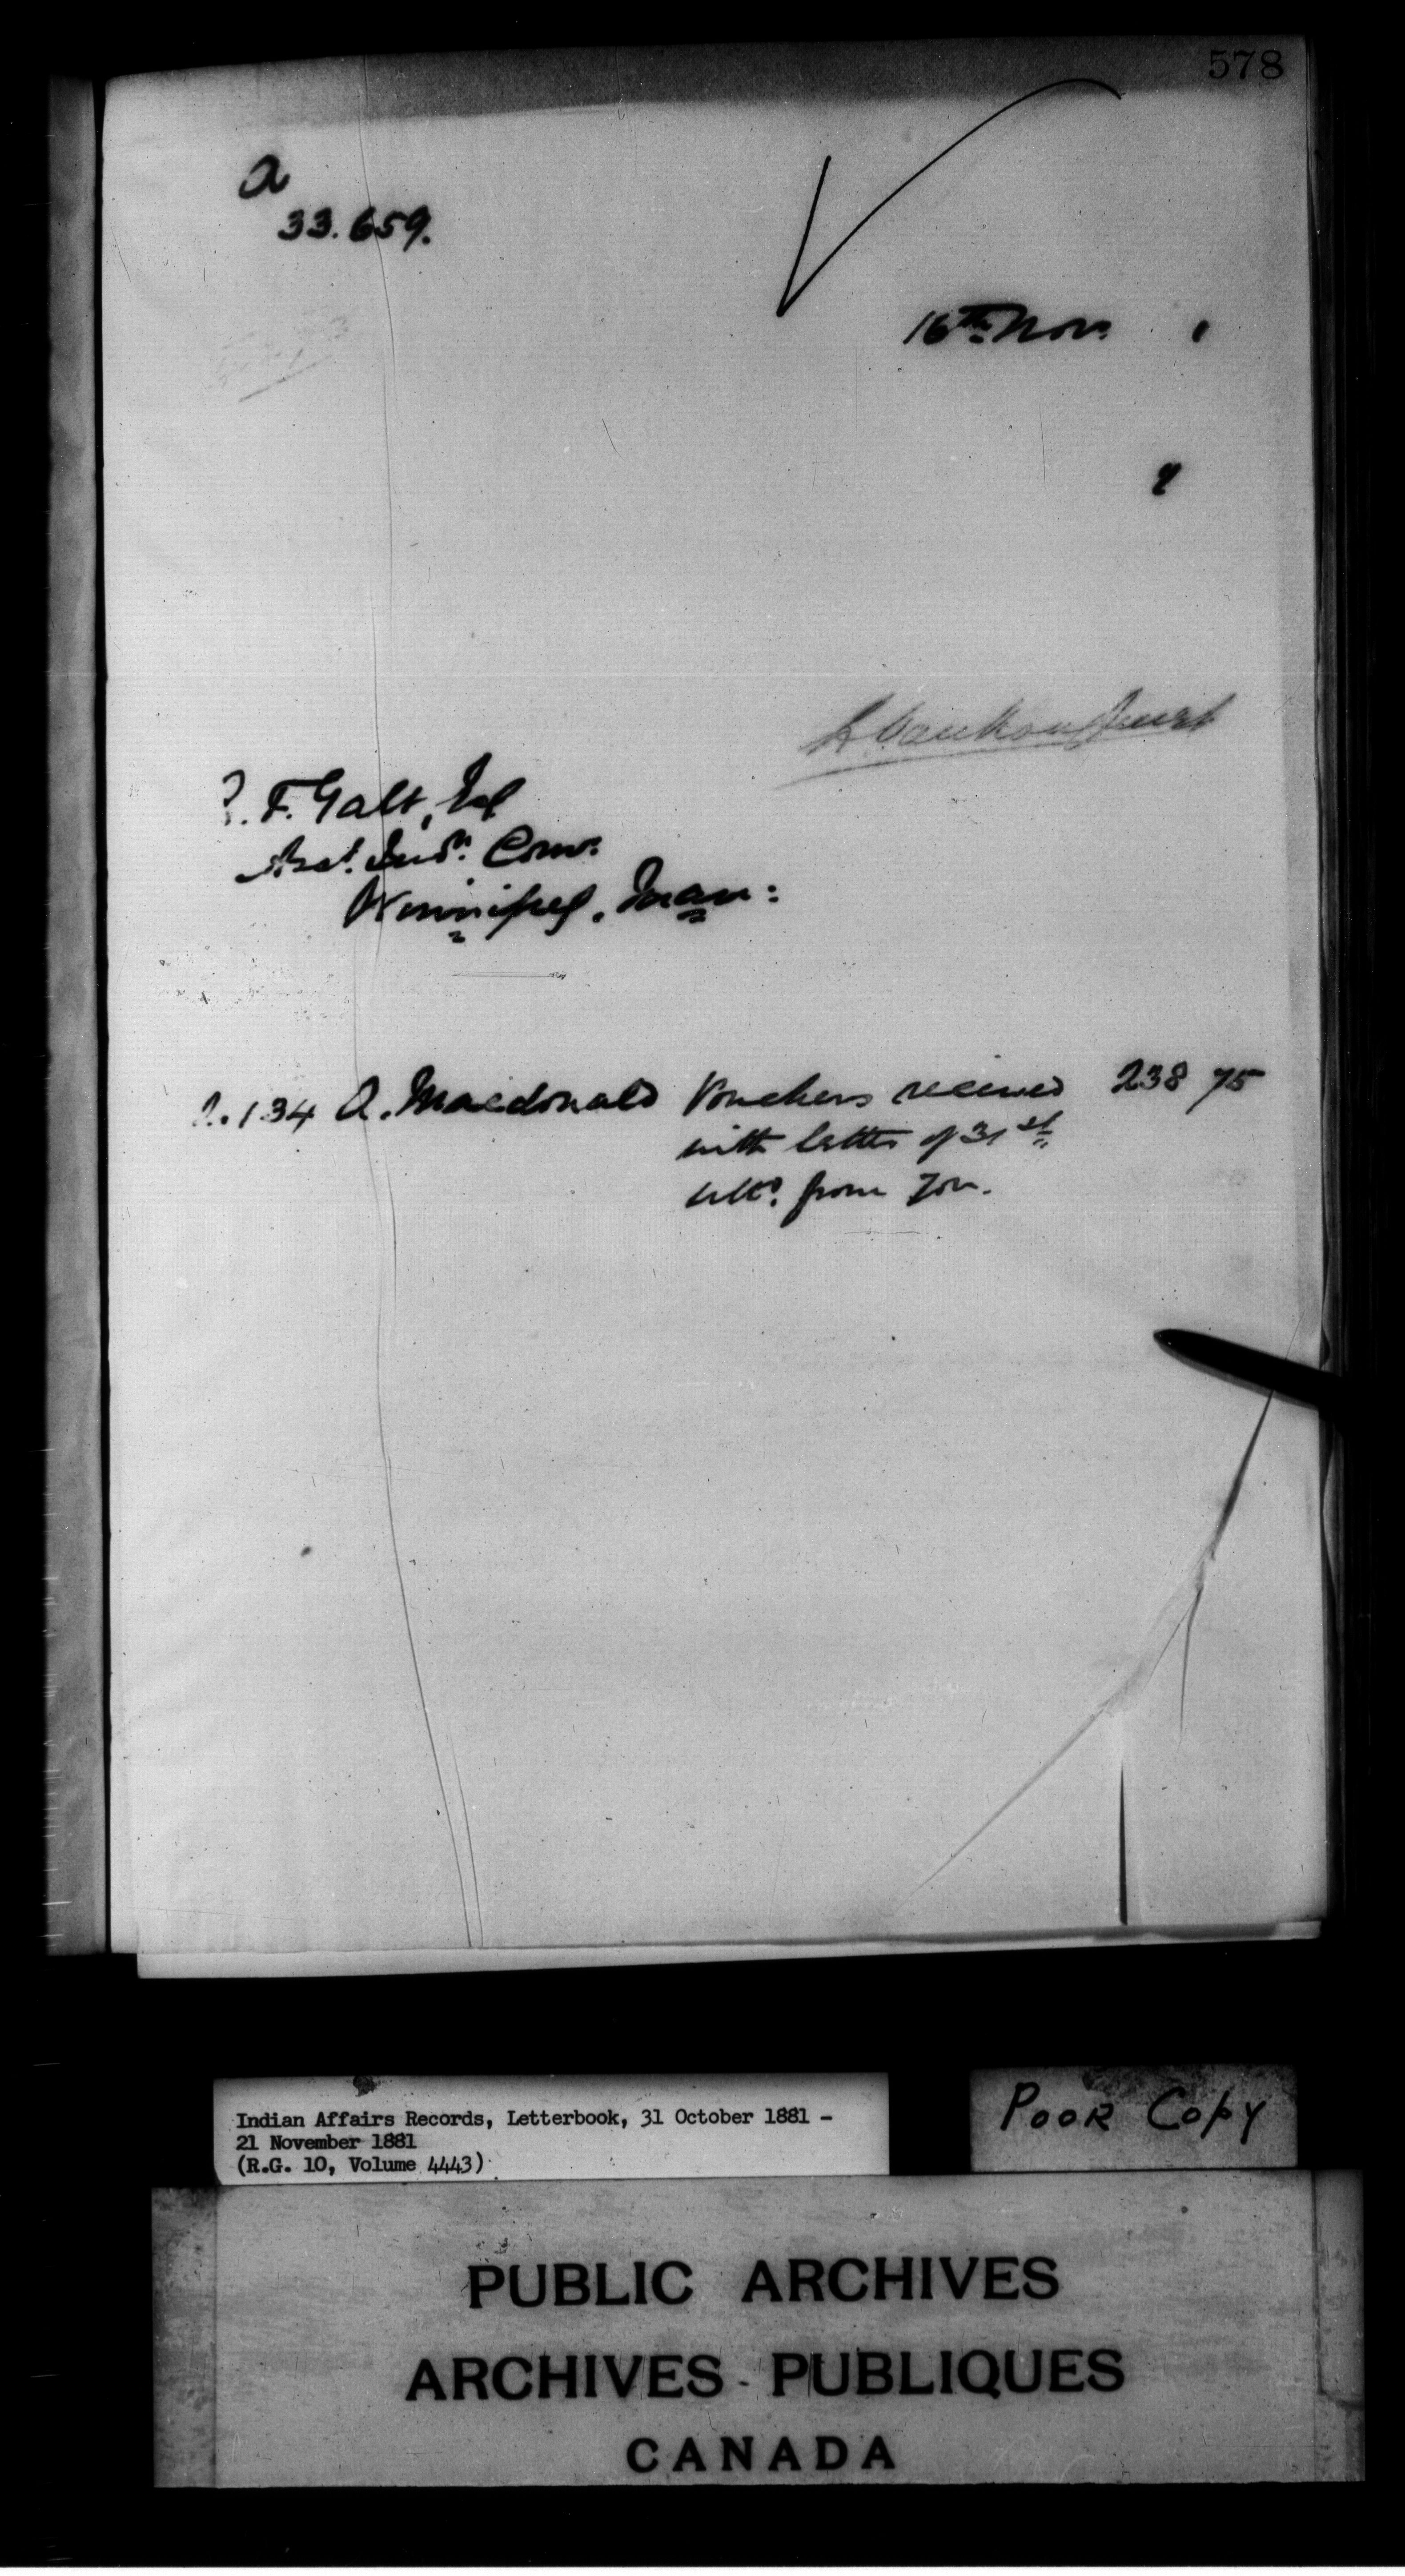 578
A
33.659.
16th Nov.
1
9
L. Vankoughnet
F. Galt, Esq
Asst. Indn. Comr.
Winnipeg, Man:
134 A. Macdonald Vouchers received 238 75
with letter of 31st
ulto. from you.
Indian Affairs Records, Letterbook, 31 October 1881 -
21 November 1881
(R.G. 10, Volume 4443)
POOR COPY
PUBLIC ARCHIVES
ARCHIVES PUBLIQUES
CANADA